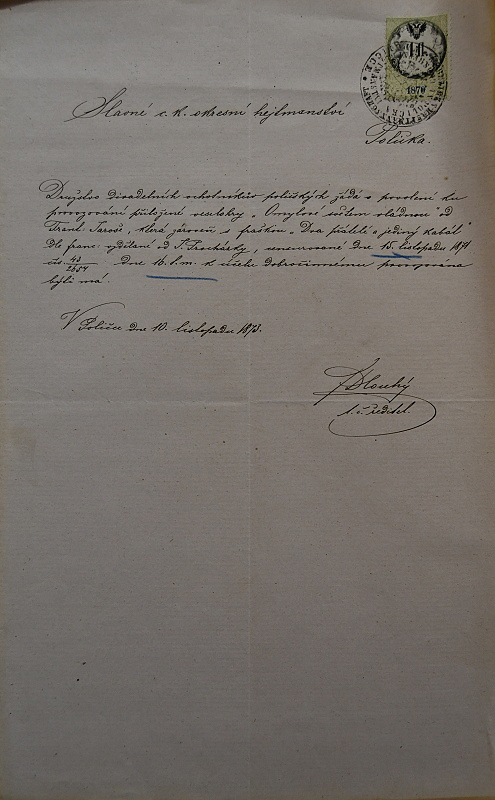 1870
Slavné c. k. okresní hejtmanství
Polička.
Družstvo divadelních ochotníkův poličských žádá o povolení ku
provozování přiložené veselohry „Omylové světem vládnou" od
Frant. Jaroš, která zároveň s fraškou „Dva přátelé a jediný kabát"
Dle franc. vzdělané od F. Procházky, censurované dne 15. listopadu 1871
čís. 43/2654 dne 16. t. m. k účelu dobročinnému provozována
býti má.
V Poličce dne 10. listopadu 1873.
Dlouhý
t. č. ředitel.